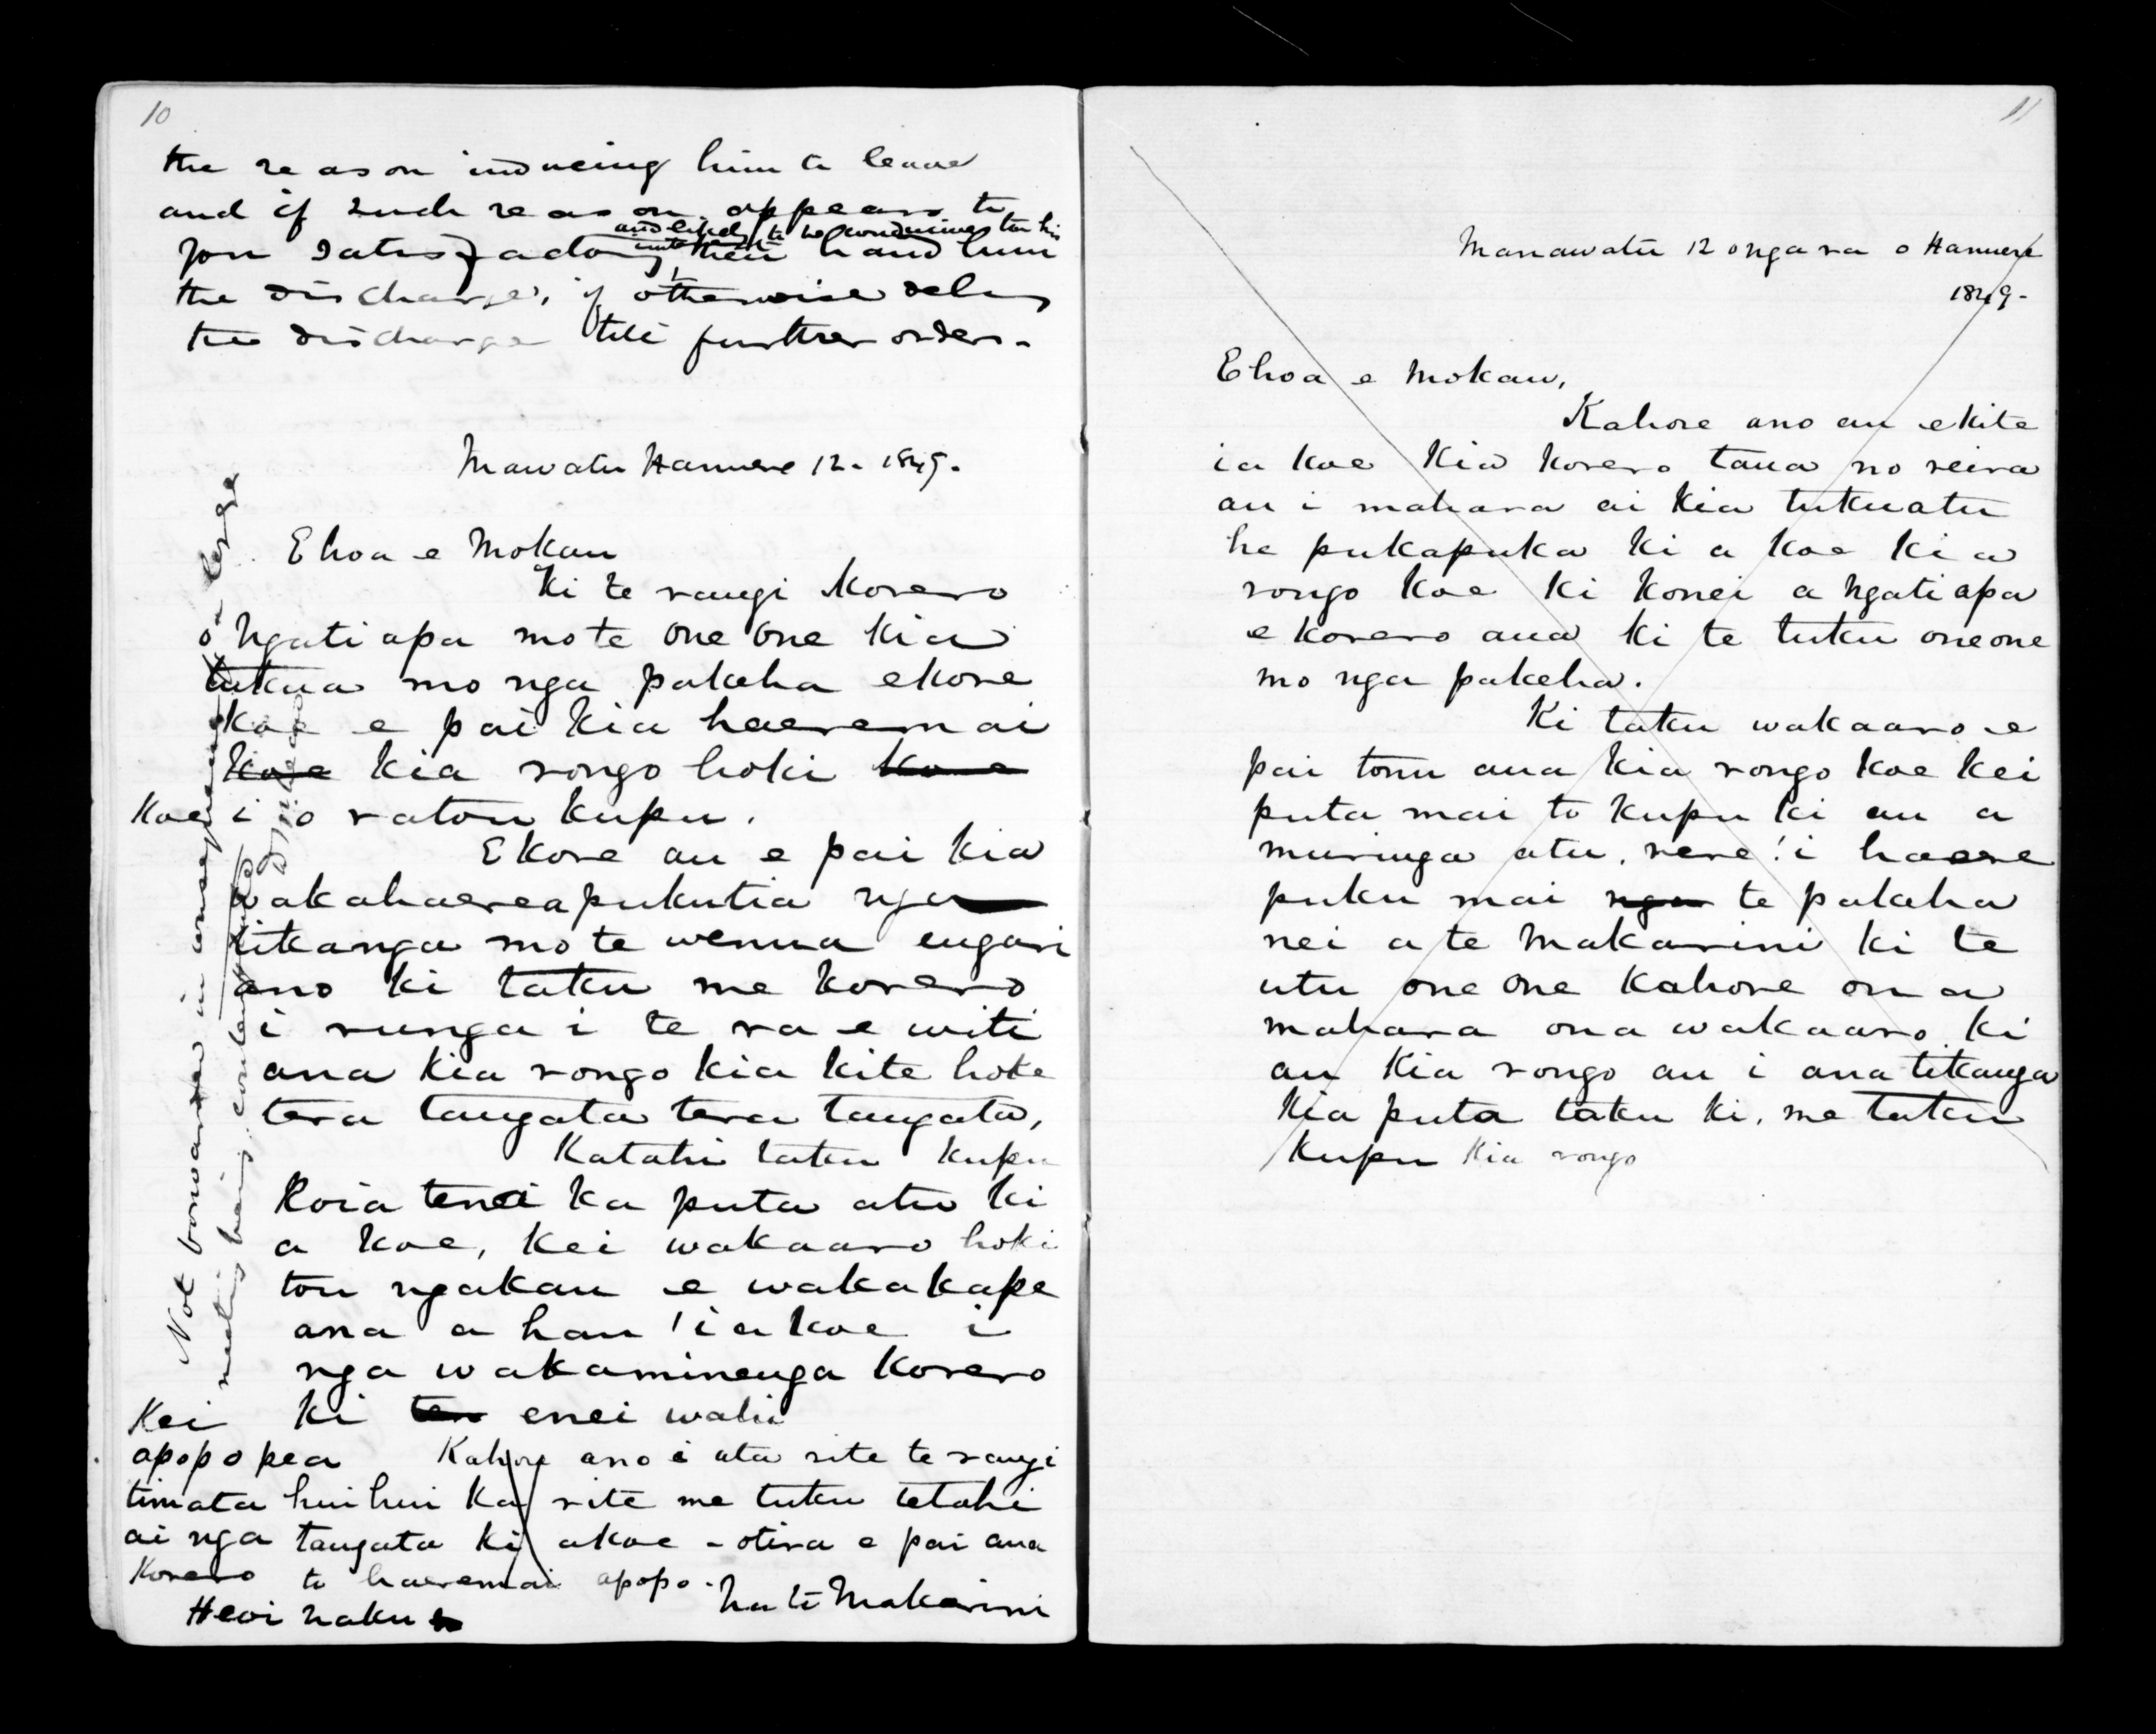 10
the reason inducing him to leave
and if such reason appears to
you satisfactory and likely to be conducive to his interest then hand him
the discharge, if otherwise delay
the discharge till further orders.
Mawatu Hanuere 12. 1849.
E hoa e Mokau
Ki te rangi korero
o Ngatiapa mo te one one kia
tukua mo nga pakeha ekore
koe e pai kia haeremai
koe kia rongo hoki koe
koe i o ratou kupu.
Ekore au e pai kia
wakahaereapukutia nga
tikanga mo te wenua engari
ano ki taku me korero
i runga i te ra e witi
ana kia rongo kia kite hoke
tera tangata tera tangata,
Katahi taku kupu
Koia tenei ka puta atu ki
a koe, kei wakaaro hoki
tou ngakau e wakakape
ana a hau i a koe i
nga wakaminenga korero
ki ten enei wahi
Kahore ano i ata rite te rangi
huihui ka rite me tuku tetahi
tangata ki akoe - otira e pai ana
to haeremai apopo.
Kei
apopo pea
timata
ai nga
Korero
Heoi naku
Na te Makarini
Not forwarded in consequence of a large
meeting being contemplated
11
Manawatu 12 onga ra o Hanuere
1849.
Ehoa e Mokau,
Kahore ano au ekite
ia koe kia korero taua no reira
au i mahara ai kia tukuatu
he pukapuka ki a koe kia
rongo koe ki konei a Ngatiapa
e korero ana ki te tuku oneone
mo nga pakeha.
Ki taku wakaaro e
pai tonu ana kia rongo koe kei
puta mai to kupu ki au a
muringa atu, nere! i haere
puku mai nga te pakeha
nei a te Makarini ki te
utu one one kahore ona
mahara ona wakaaro ki
au kia rongo au i ana tikanga
kia puta taku ki, me taku
kupu kia rongo